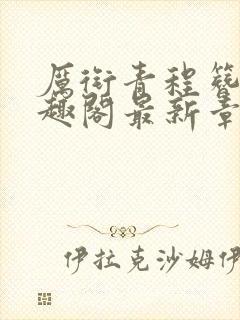 厉衔青程簪
趣阁最新章
伊拉克沙姆伊